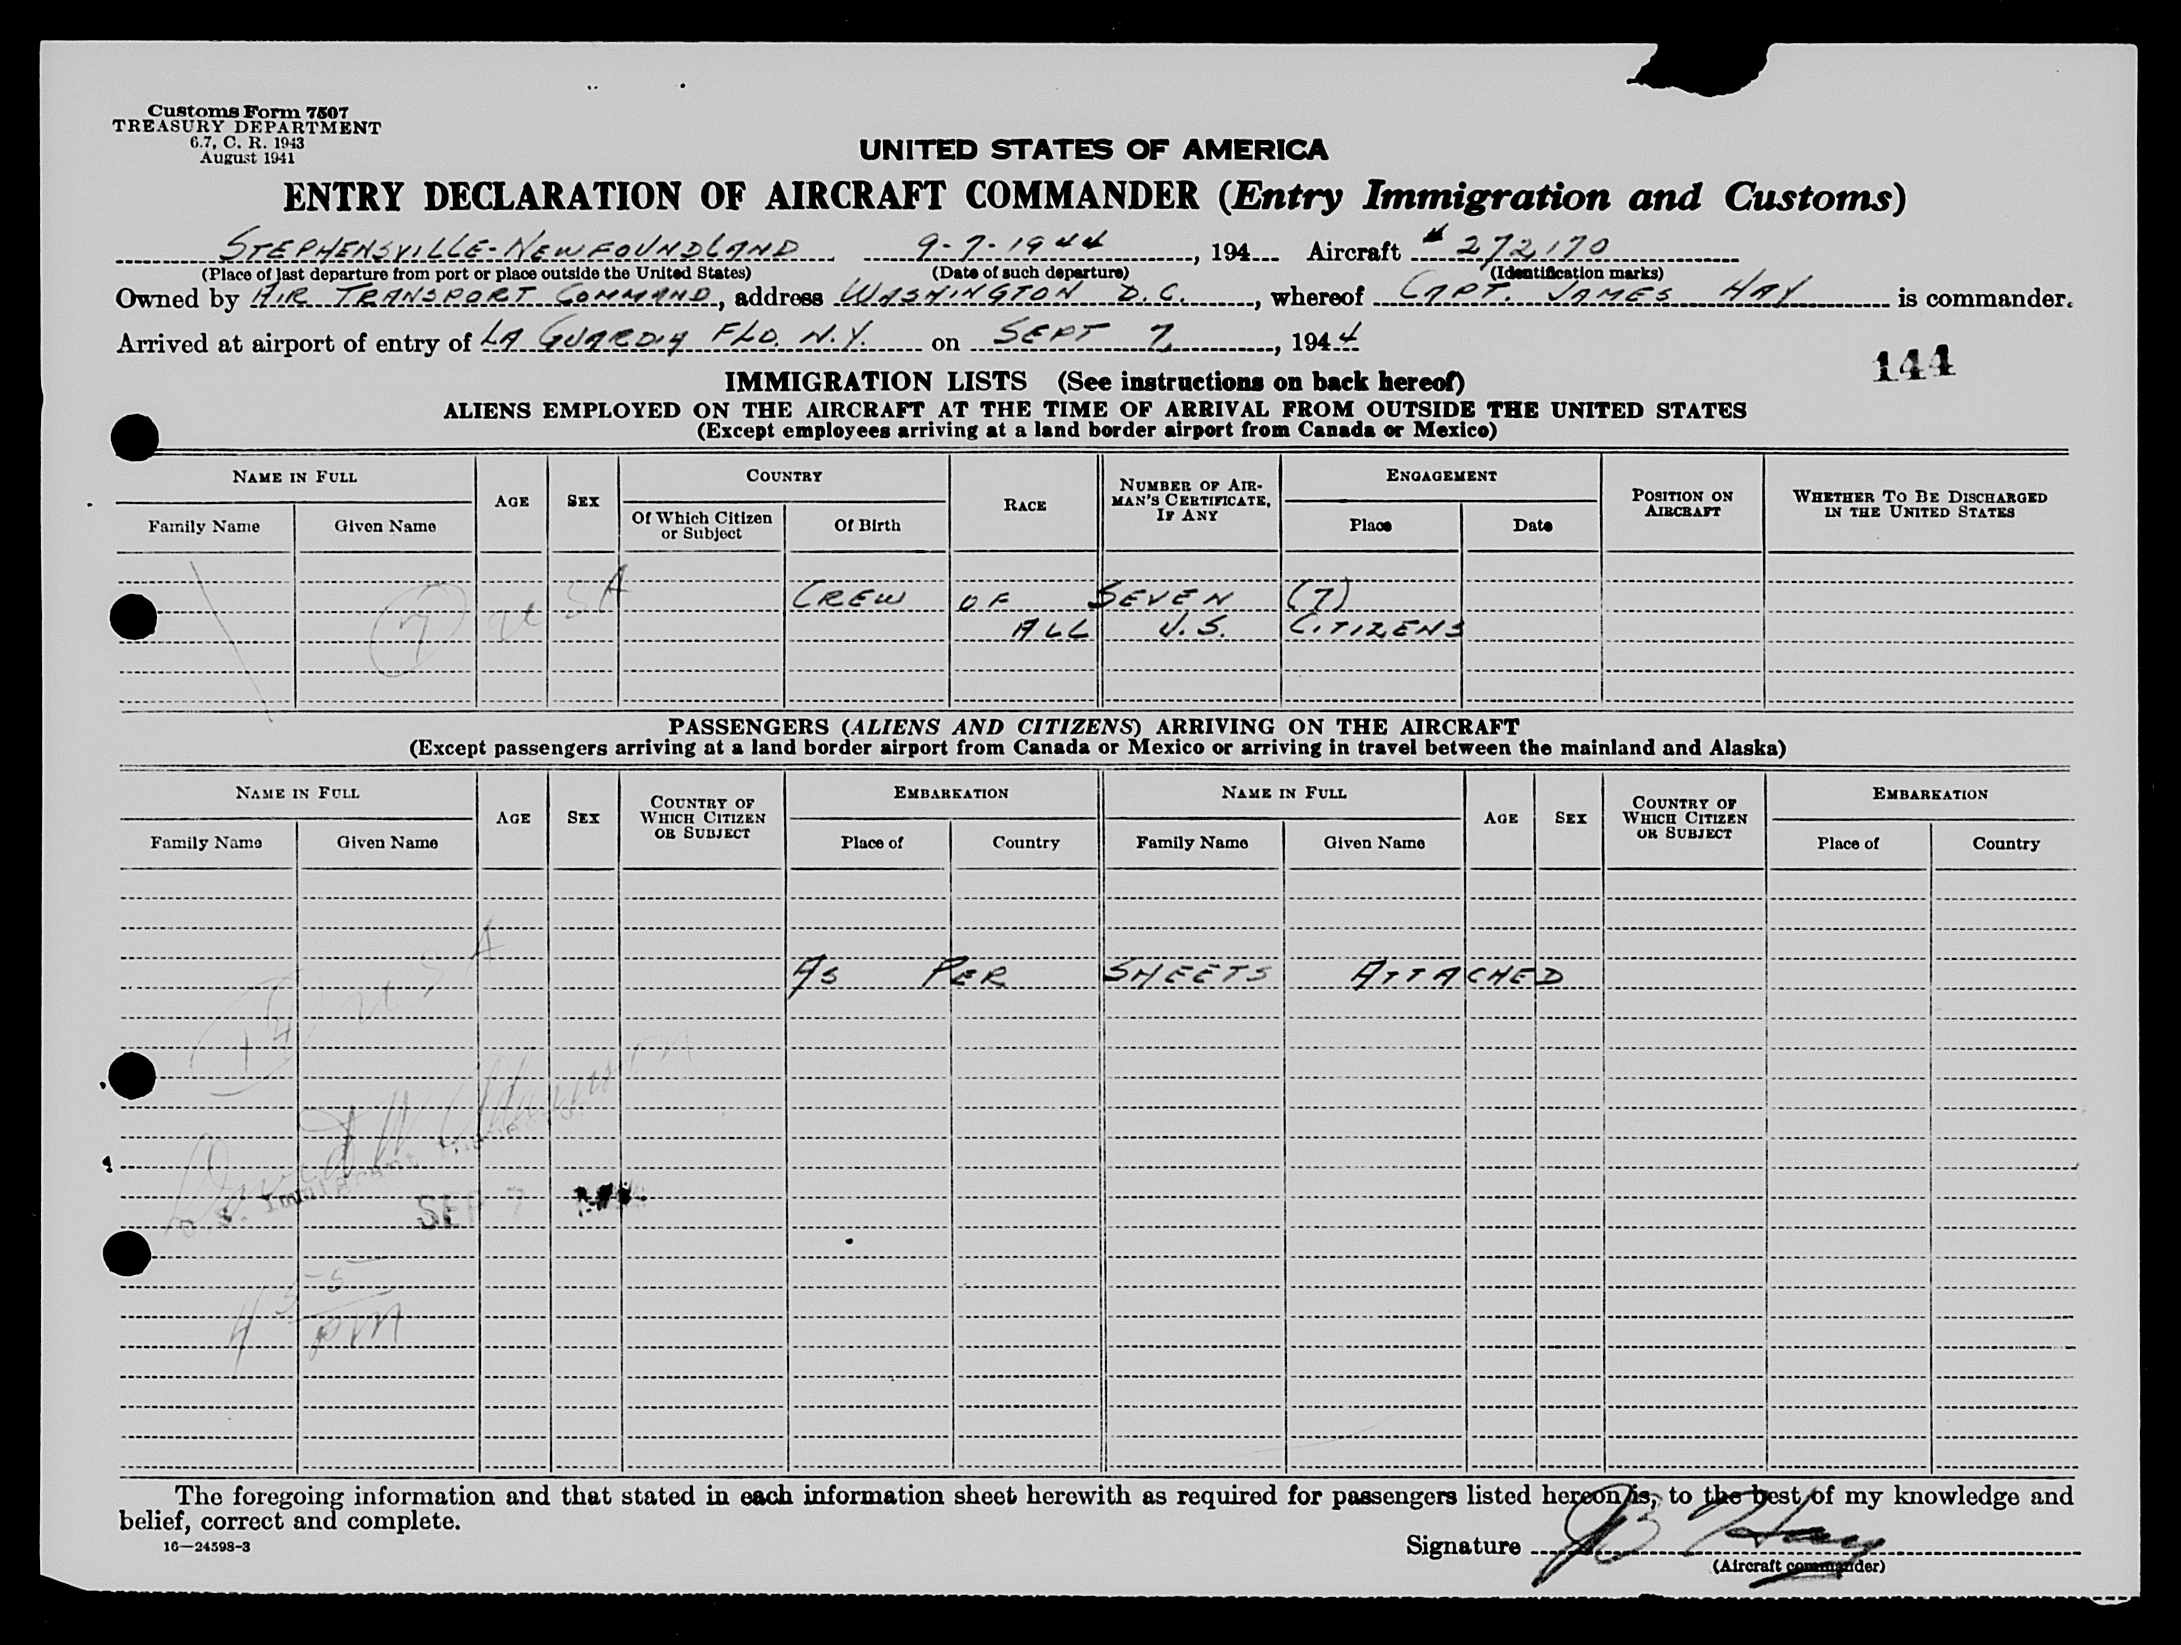 Customs Form 7507
TREASURY DEPARTMENT
6.7, C. R. 1943
August 1941
UNITED STATES OF AMERICA
ENTRY DECLARATION OF AIRCRAFT COMMANDER (Entry Immigration and Customs)
STEPHENSVILLE-NEWFOUNDLAND 9-7-1944, 194 Aircraft # 272170
(Place of last departure from port or place outside the United States) (Date of such departure) (Identification marks)
Owned by AIR TRANSPORT COMMAND, address WASHINGTON D.C., whereof CAPT. JAMES HAY is commander.
Arrived at airport of entry of LA GUARDIA FLD. N.Y. on SEPT 7, 1944
144
IMMIGRATION LISTS (See instructions on back hereof)
ALIENS EMPLOYED ON THE AIRCRAFT AT THE TIME OF ARRIVAL FROM OUTSIDE THE UNITED STATES
(Except employees arriving at a land border airport from Canada or Mexico)
NAME IN FULL AGE SEX COUNTRY RACE NUMBER OF AIRMAN'S CERTIFICATE, IF ANY ENGAGEMENT POSITION ON AIRCRAFT WHETHER TO BE DISCHARGED IN THE UNITED STATES
Family Name Given Name Of Which Citizen or Subject Of Birth Place Date
CREW OF SEVEN (7)
7 USA
ALL U.S. CITIZENS
PASSENGERS (ALIENS AND CITIZENS) ARRIVING ON THE AIRCRAFT
(Except passengers arriving at a land border airport from Canada or Mexico or arriving in travel between the mainland and Alaska)
NAME IN FULL AGE SEX COUNTRY OF WHICH CITIZEN OR SUBJECT EMBARKATION NAME IN FULL AGE SEX COUNTRY OF WHICH CITIZEN OR SUBJECT EMBARKATION
Family Name Given Name Place of Country Family Name Given Name Place of Country
USA
AS PER SHEETS ATTACHED
David W
U.S. Immigrant Inspector
SEP 7
4 35 pm
The foregoing information and that stated in each information sheet herewith as required for passengers listed hereon is, to the best of my knowledge and
belief, correct and complete.
16—24598-3
Signature JB Hay
(Aircraft commander)